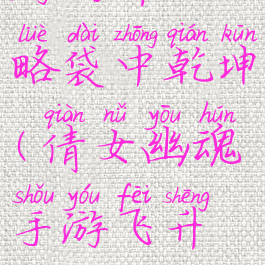 lüè dài zhōng qián kūn
略袋中乾坤
qiàn nǚ yōu hún
(倩女幽魂
shǒu yóu fēi shēng
手游飞升